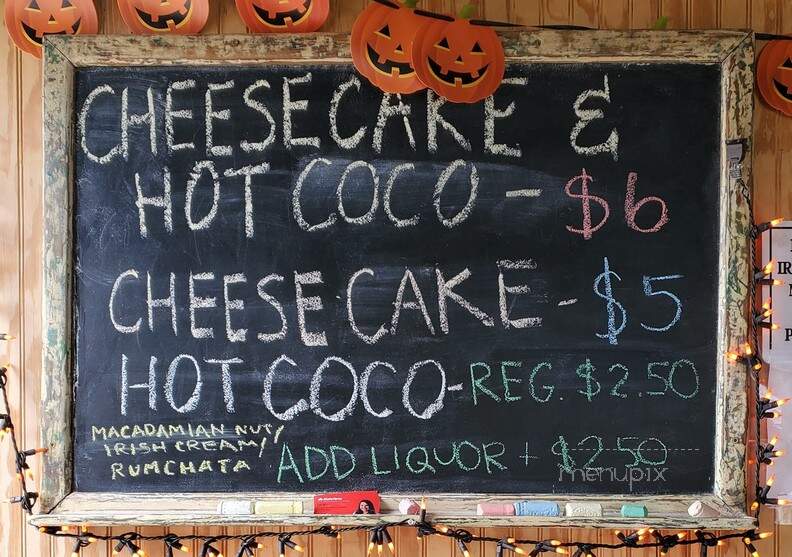 CHEESECAKE &
HOT COCO - $6
CHEESECAKE - $5
HOT COCO - REG. $2.50
MACADAMIAN NUT/
IRISH CREAM/
RUMCHATA
ADD LIQUOR + $2.50
menupix